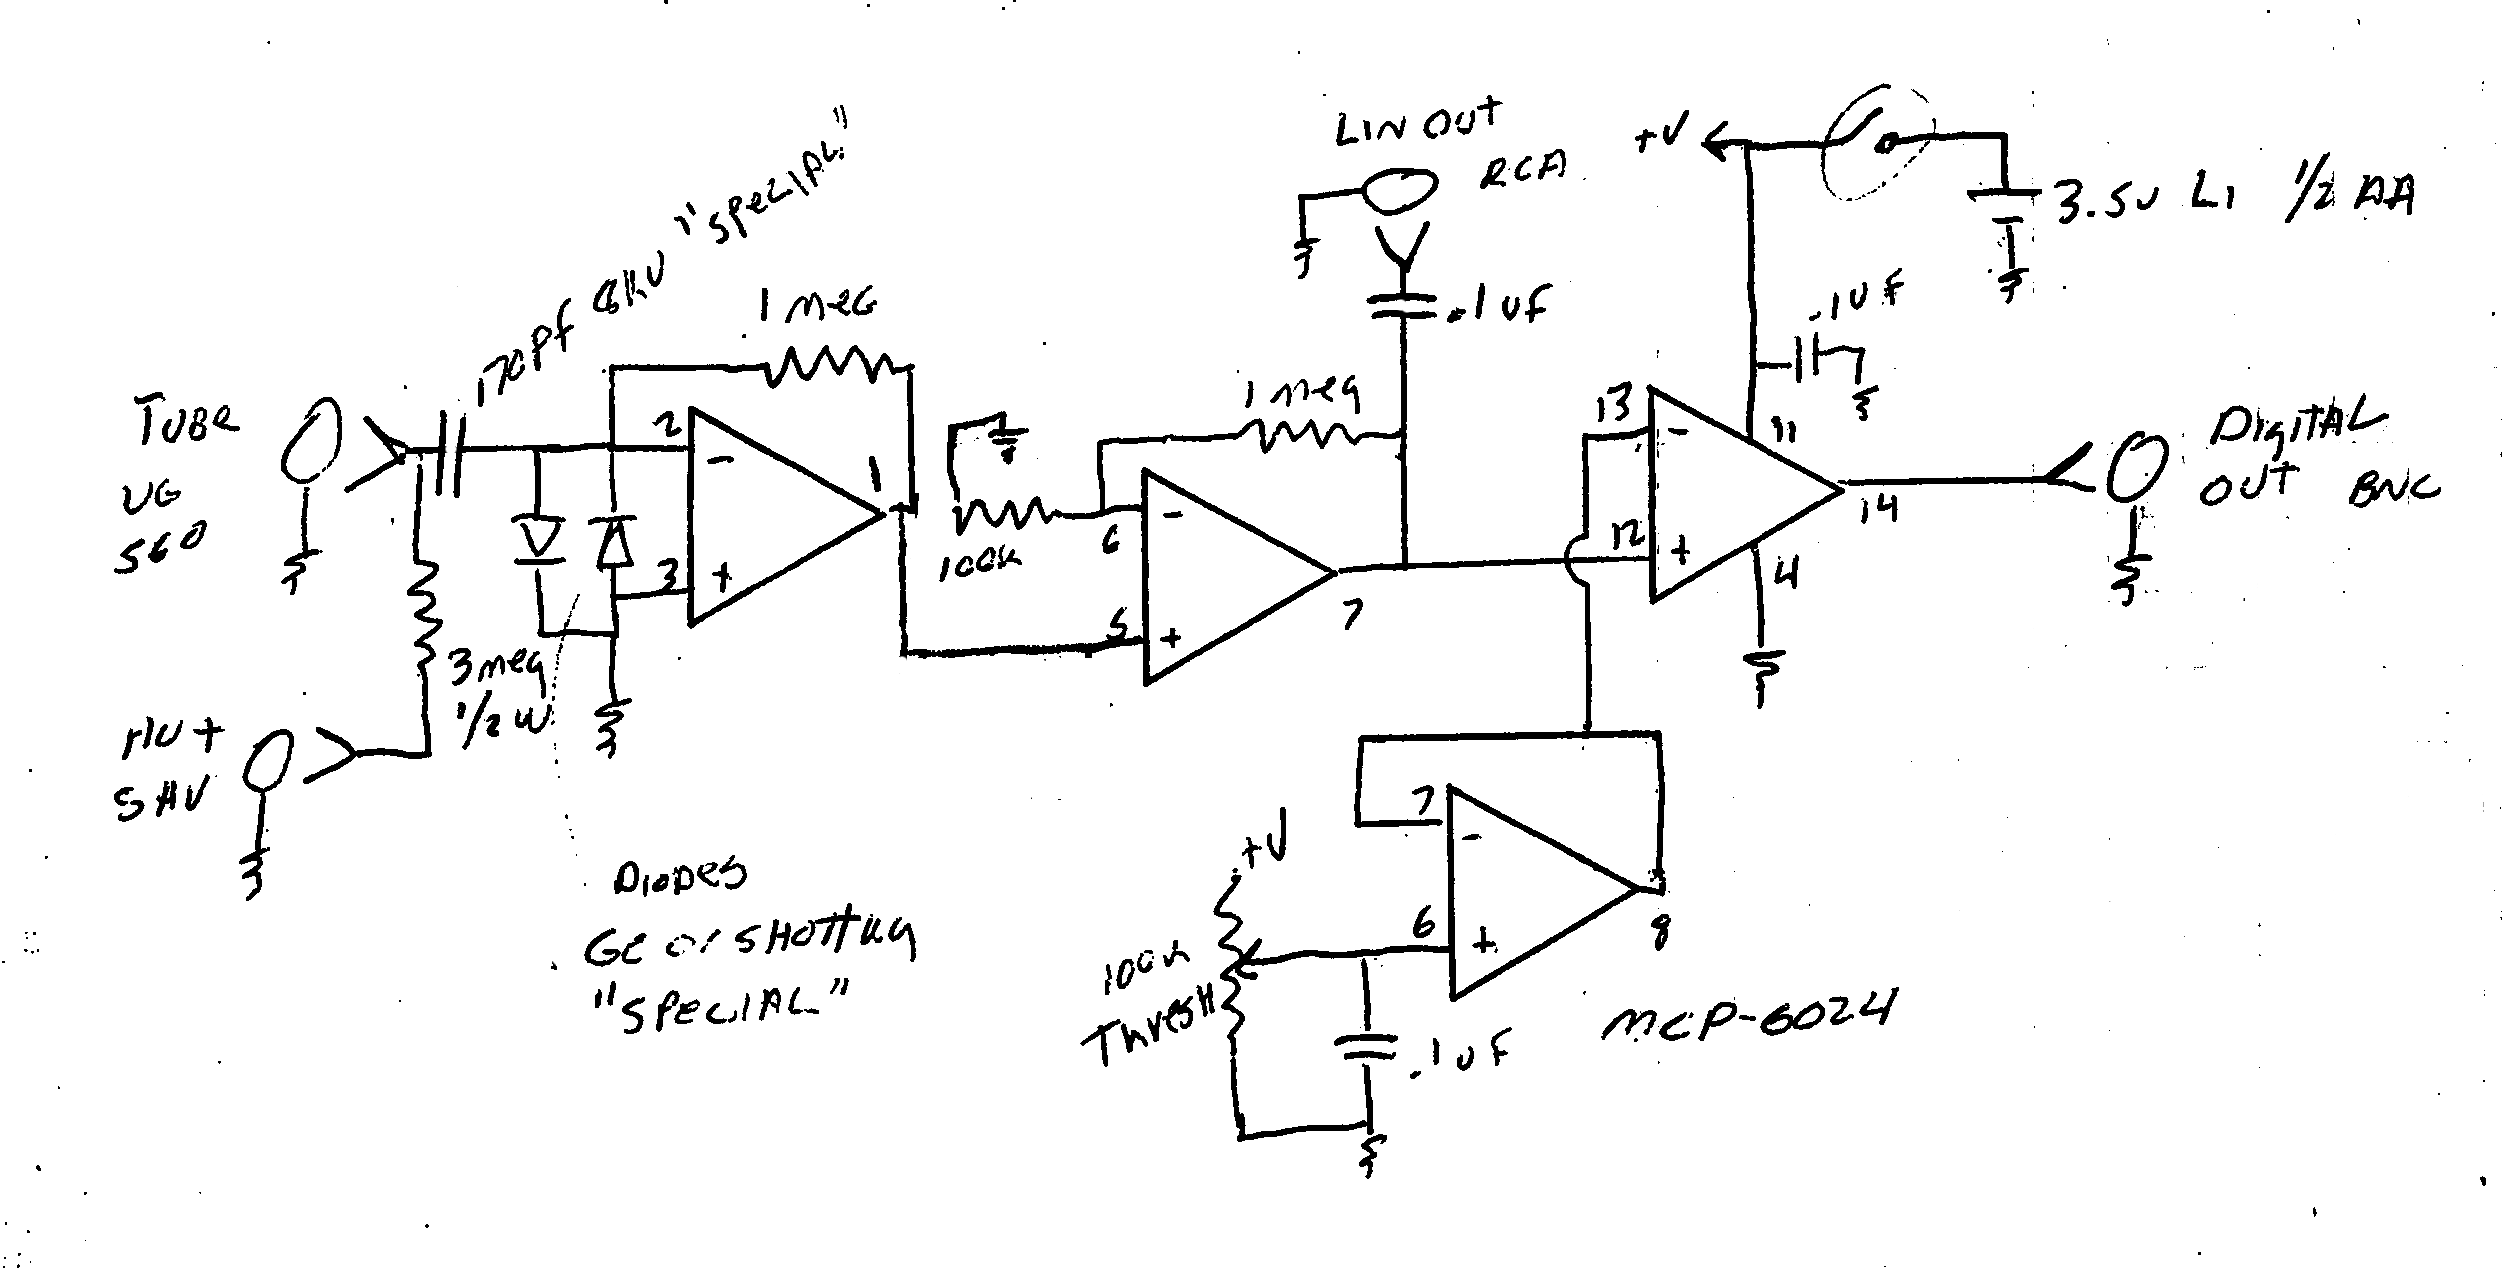 TUBE
UG
560
HV +
SHV
170pf 6KV "SPECIAL"
3 meg
1/2 W
1 meg
2
3
1
-
+
DIODES
GE or SHOTTKY
"SPECIAL"
100K
1 meg
6
5
7
-
+
LIN OUT
RCA
.1uF
+V
3.5V LI 1/2 AA
.1UF
13
12
11
4
14
-
+
DIGITAL
OUT BNC
+V
100K
THRESH
7
6
8
-
+
.1UF
MCP-6024